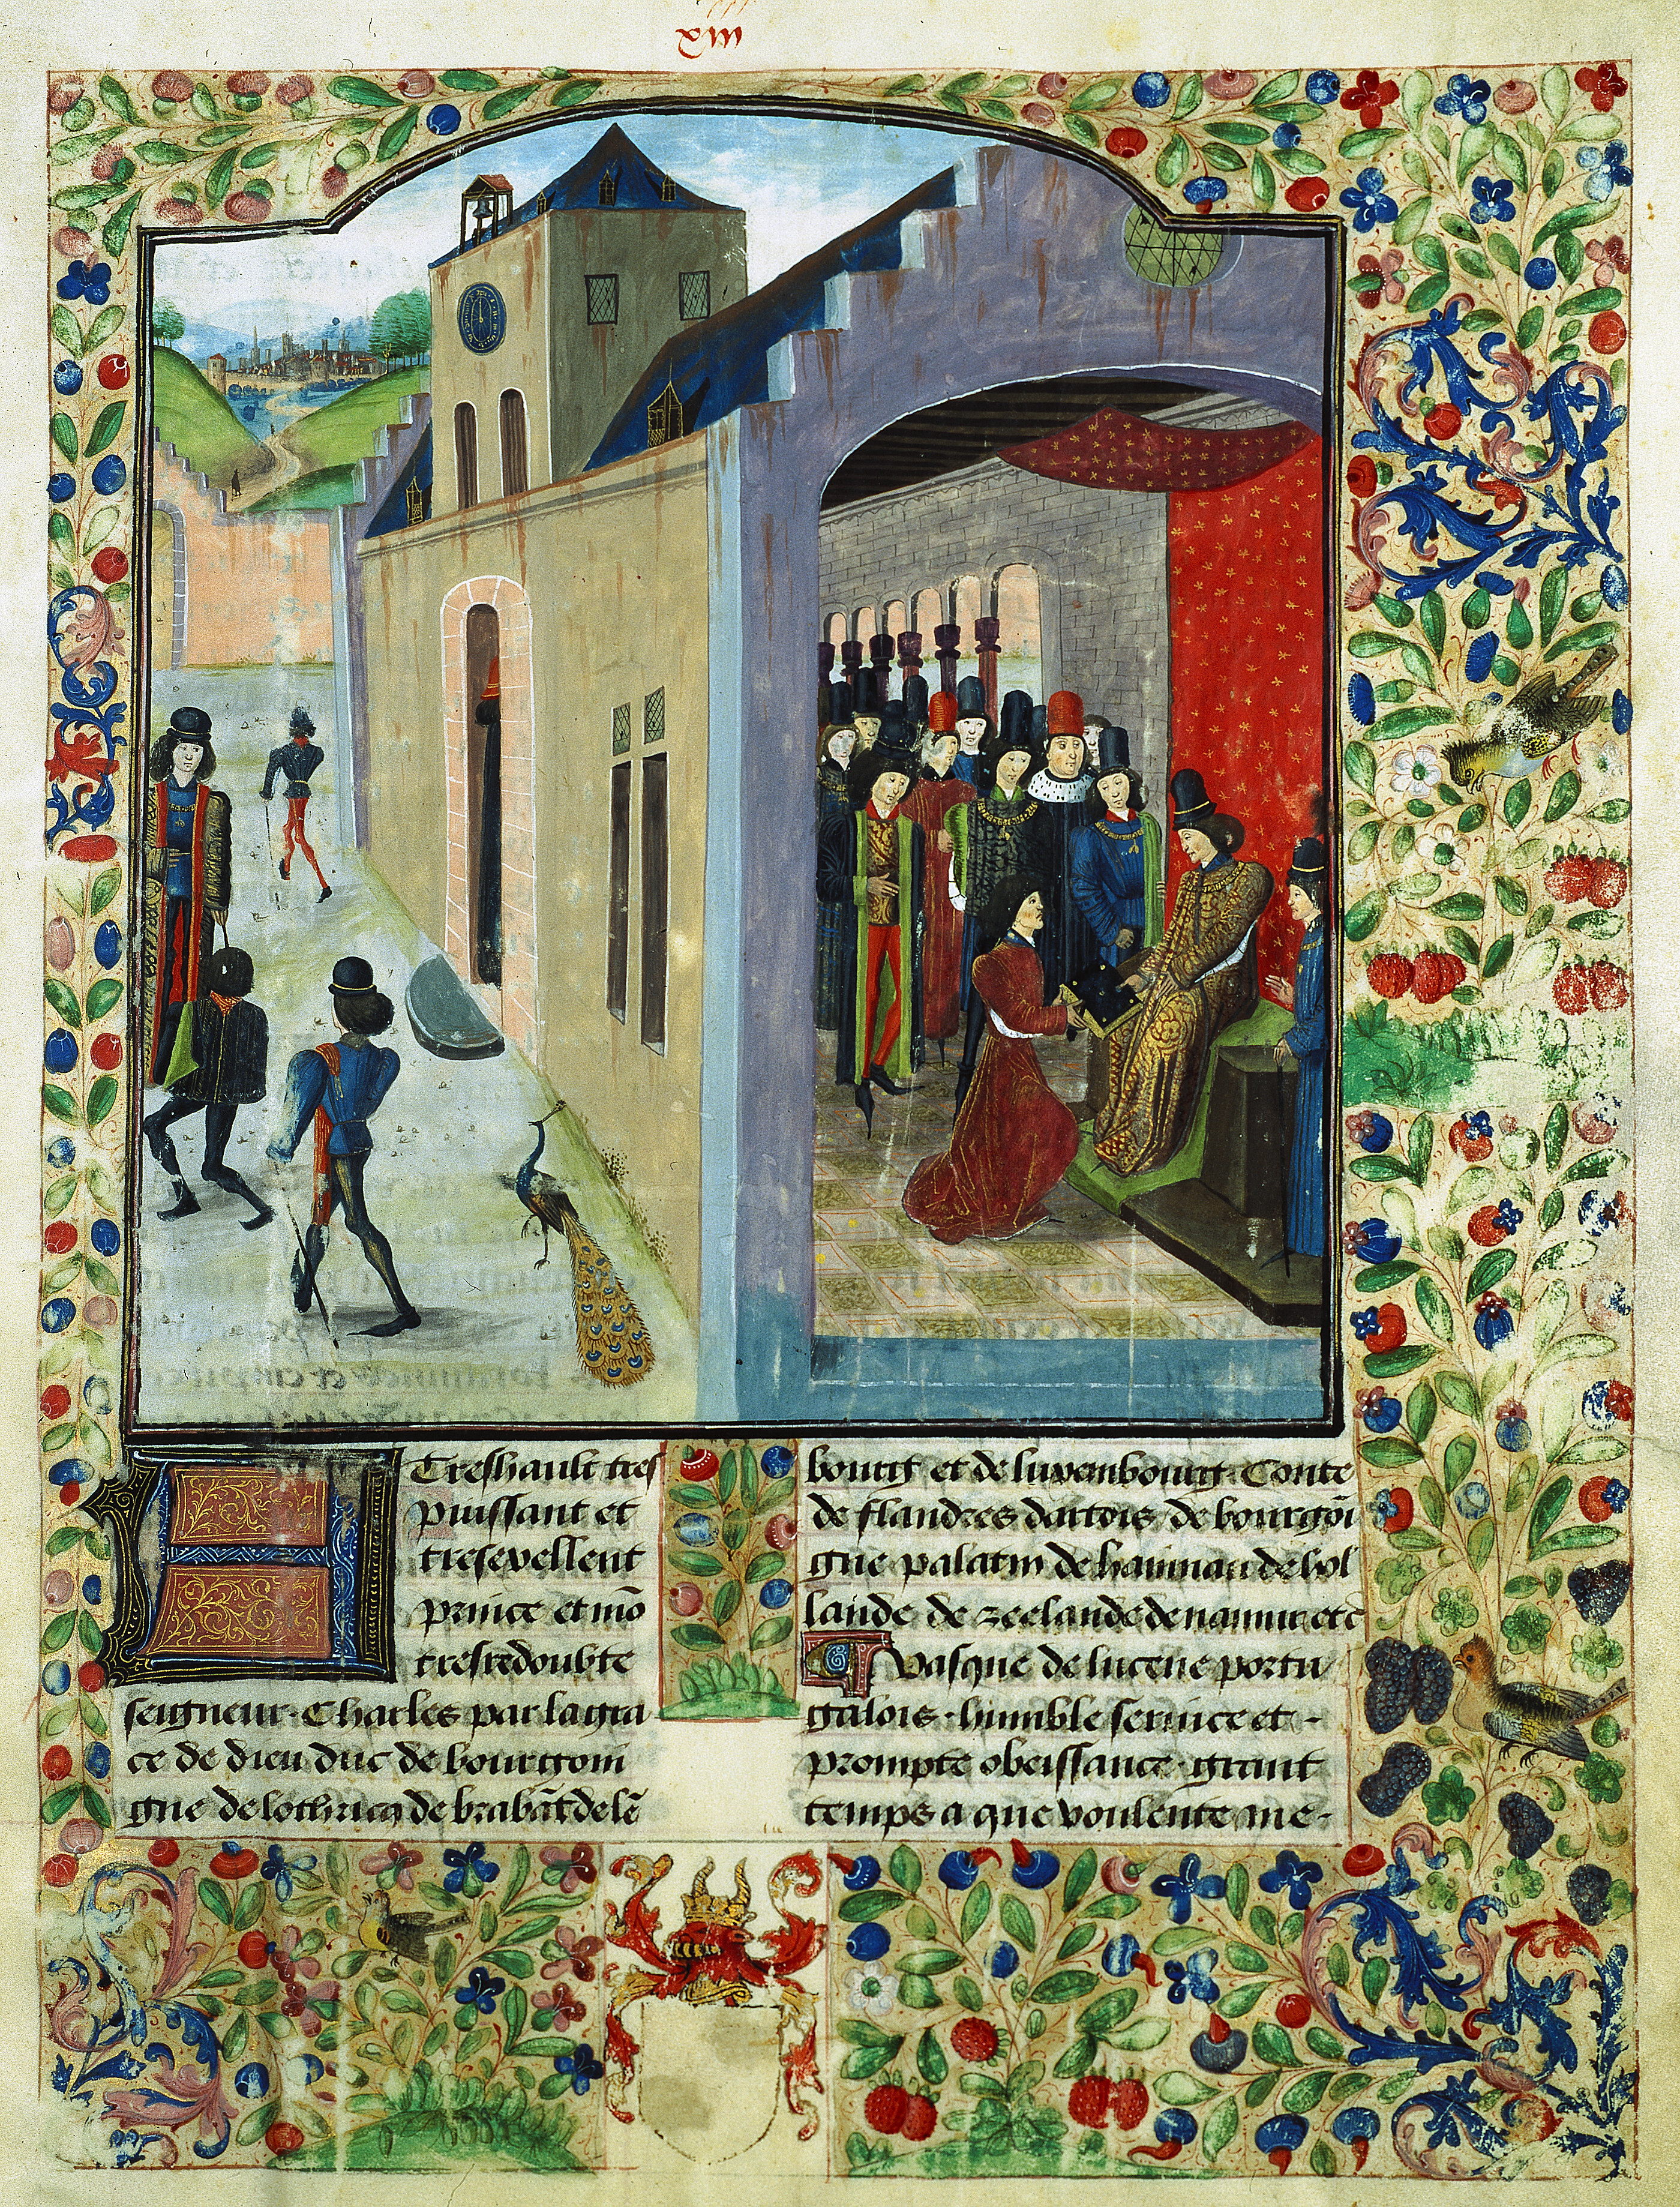 xiii
A Treshault tres
puissant et
tresexellent
prince et mō
tresredoubte
seigneur. Charles par la gra
ce de dieu duc de bourgoin
gne de lothricq de brabāt de lē
bourg et de luxembourg. Conte
de flandres dartois de bourgōi
gne palatin de hainnau de hol
lande de zeelande de namur etc̄
Vasque de lucene portu
galois. humble seruice et -
prompte obeissance. grant
temps a que voulente me-